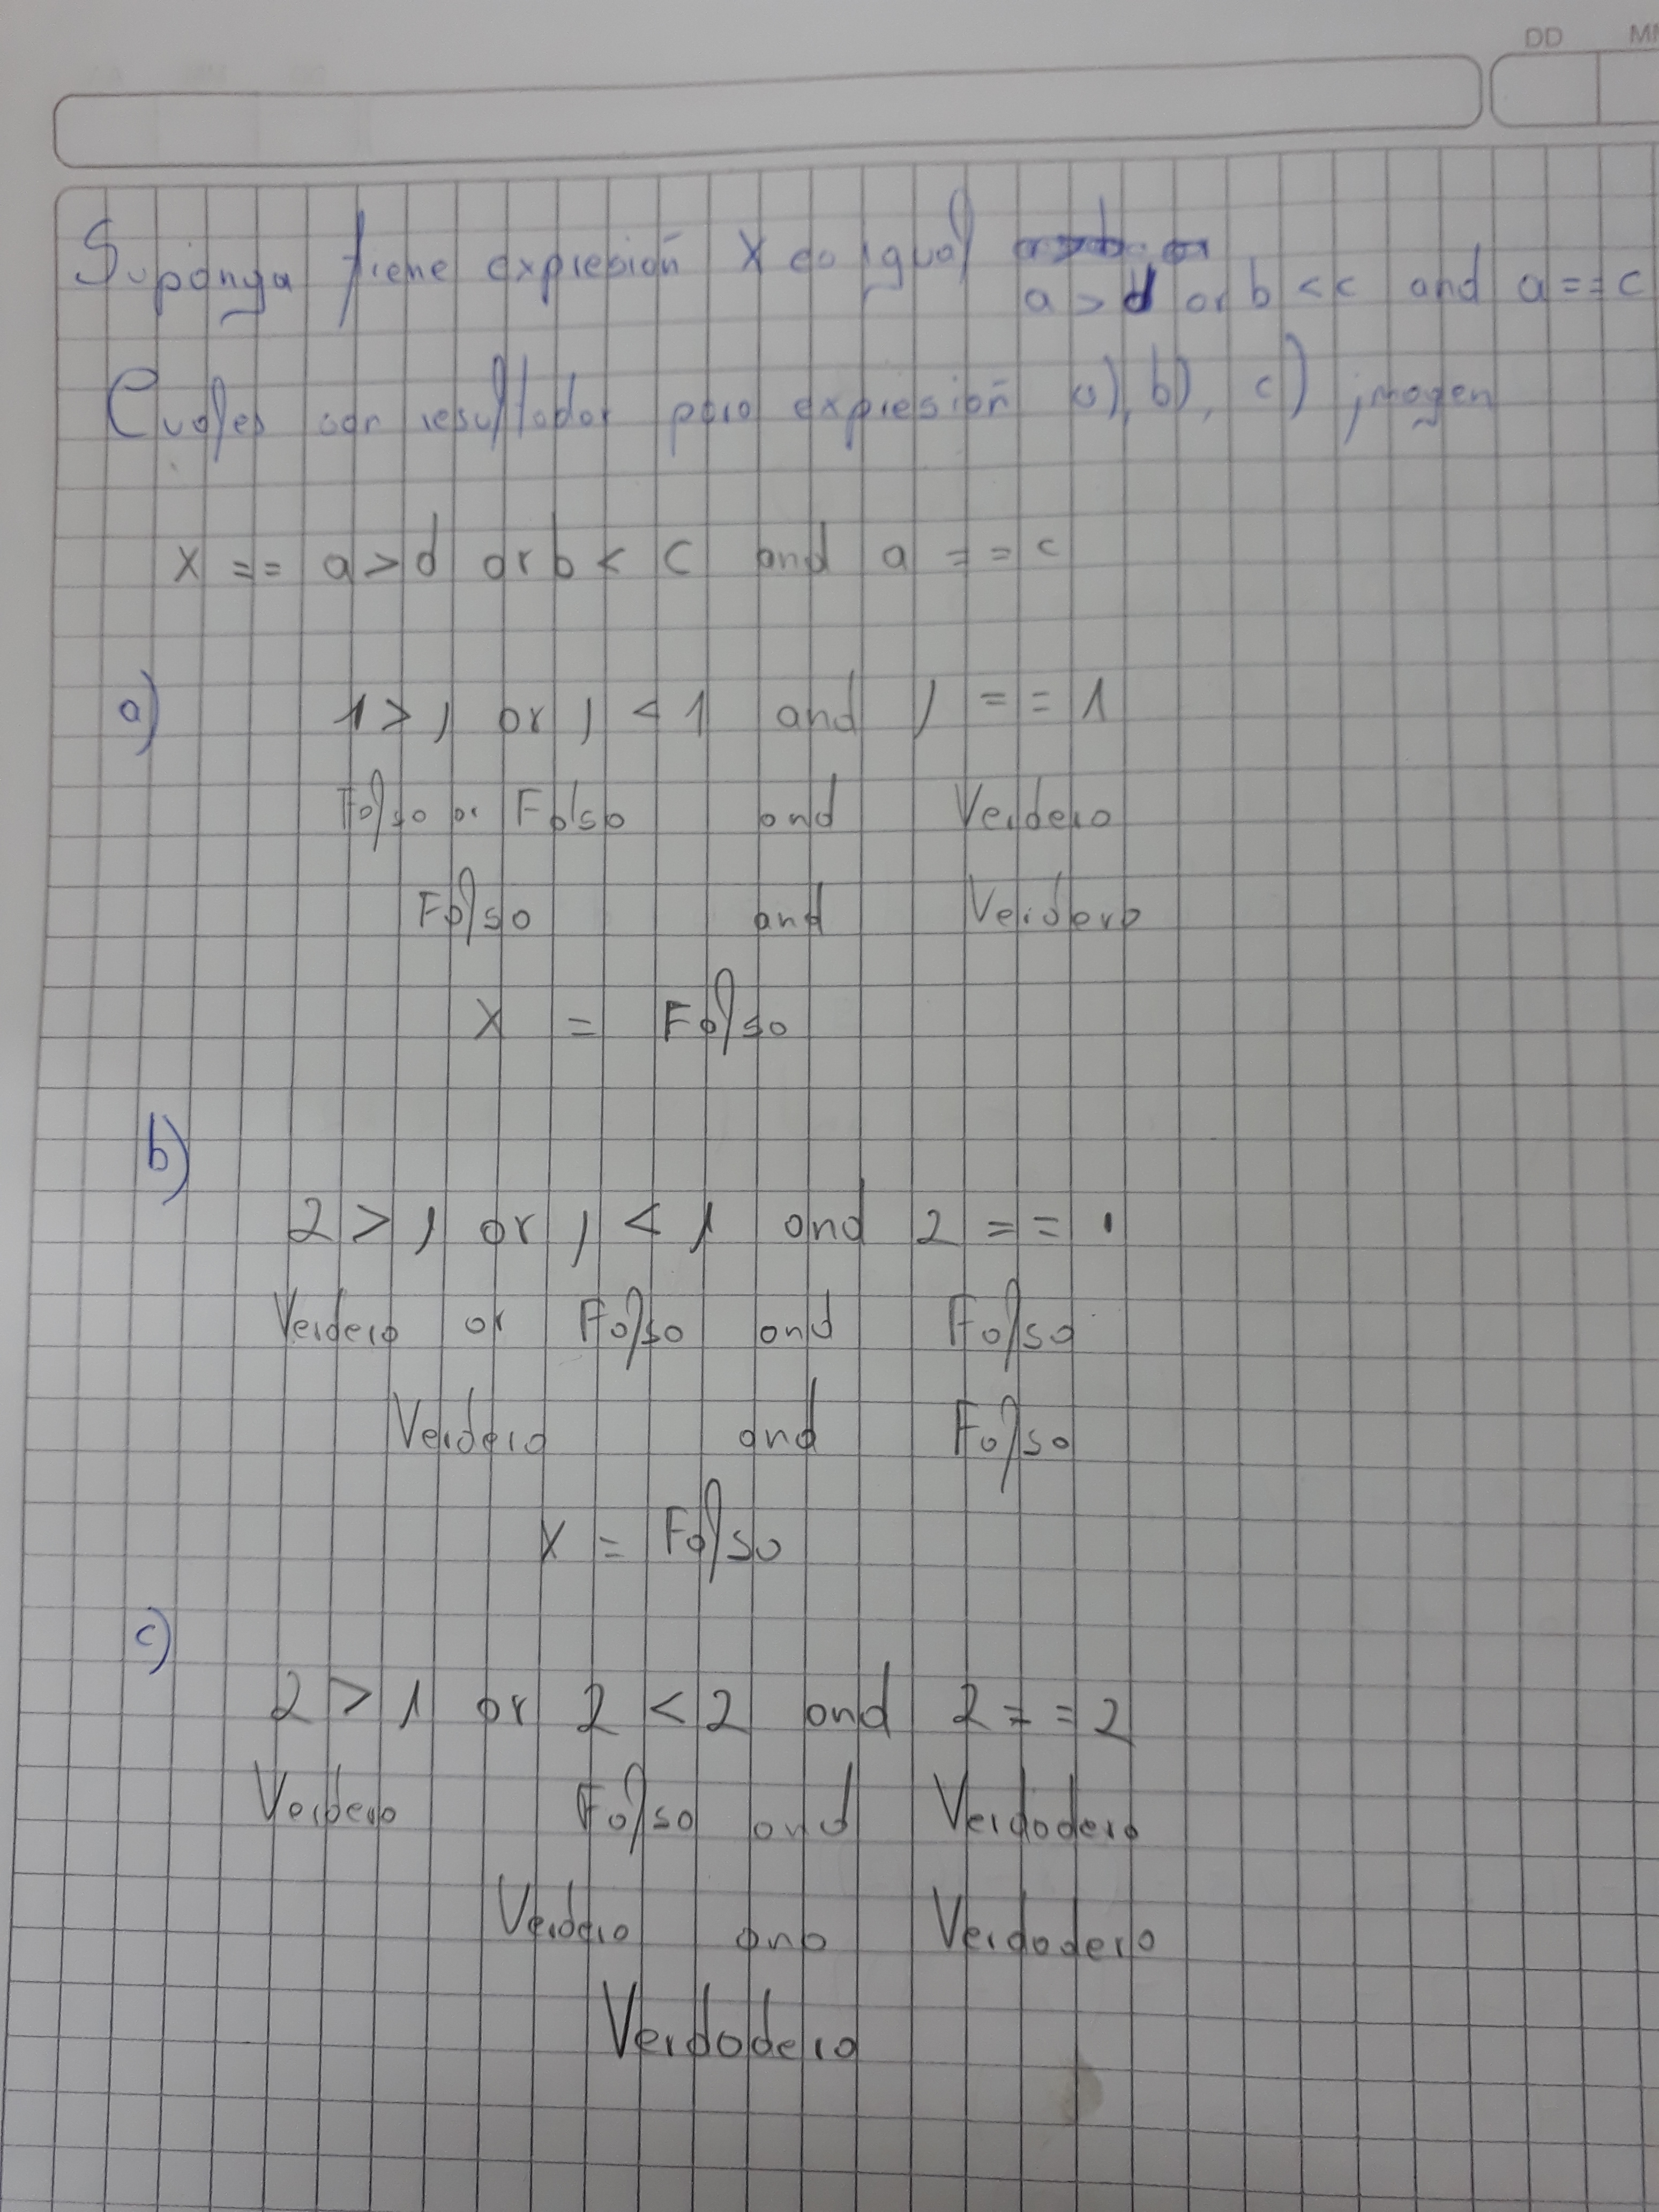 DD MM
Suponga tiene expresión X es igual
a > d or b < c and a == c
Cuales son resultados para expresión a), b), c) imagen
X == a > d or b < c and a == c
a) 1 > 1 or 1 < 1 and 1 == 1
Falso or Falso and Verdero
Falso and Verdero
X = Falso
b)
2 > 1 or 1 < 1 and 2 == 1
Verdero or Falso and Falso
Verdero and Falso
X = Falso
c)
2 > 1 or 2 < 2 and 2 == 2
Verdero Falso and Verdadero
Verdero and Verdadero
Verdadero